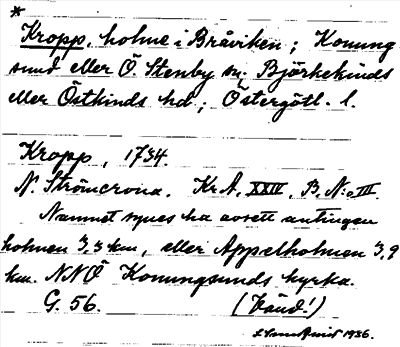 *
Kropp, holme i Bråviken; Konung
sund eller Ö. Stenby sn; Björkekinds
eller Östkinds hd; Östergötl. l.
Kropp, 1734.
N. Strömcrona. Kr. A. XXIV, B. N:o III.
Namnet synes ha avsett antingen
holmen 3,3 km, eller Appelholmen 3,9
km. NNÖ Konungsunds kyrka.
G. 56. (Känd!)
1936.